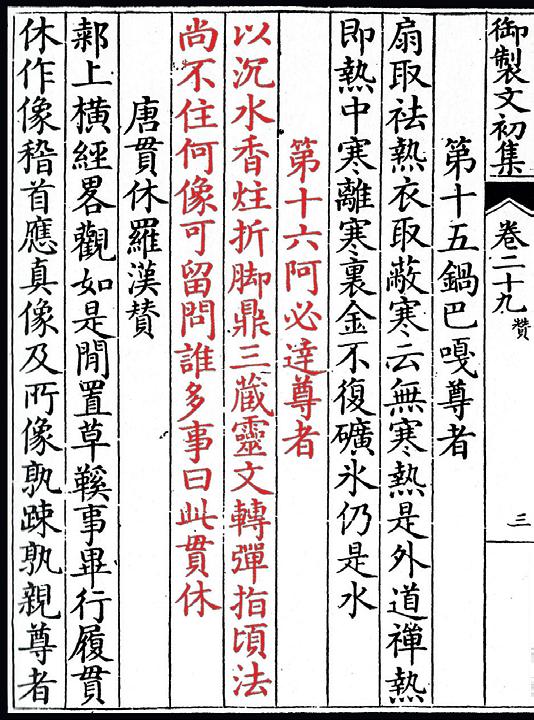 御製文初集
卷二十九
贊
三
第十五鍋巴嘎尊者
扇取祛熱衣取蔽寒云無寒熱是外道禪熱
即熱中寒離寒裏金不復礦氷仍是水
第十六阿必達尊者
以沉水香炷折脚鼎三藏靈文轉彈指頃法
尚不住何像可留問誰多事曰此貫休
唐貫休羅漢贊
鄴上橫經畧觀如是閒置草鞵事畢行履貫
休作像稽首應真像及所像孰踈孰親尊者